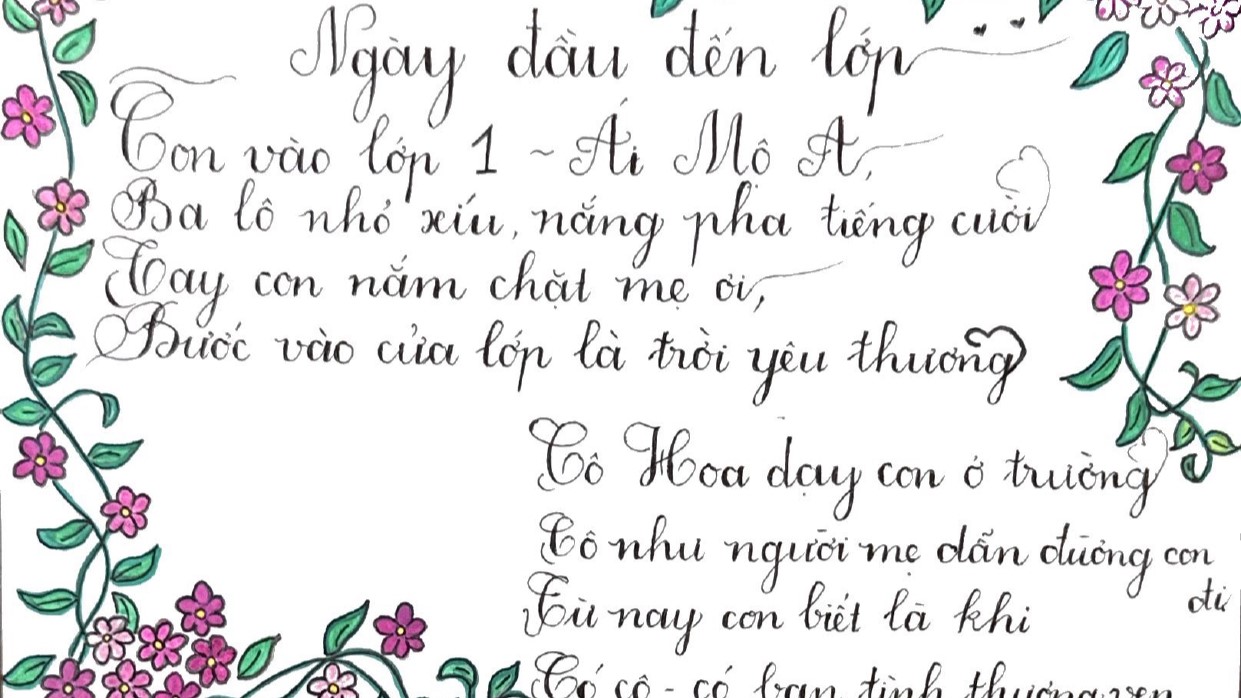 Ngày đầu đến lớp
Con vào lớp 1 ~ Ái Mộ A,
Ba lô nhỏ xíu, nắng pha tiếng cười
Tay con nắm chặt mẹ ơi,
Bước vào cửa lớp là trời yêu thương
Cô Hoa dạy con ở trường
Cô như người mẹ dẫn đường con
đi
Từ nay con biết là khi
Có cô - có bạn tình thương vẹn